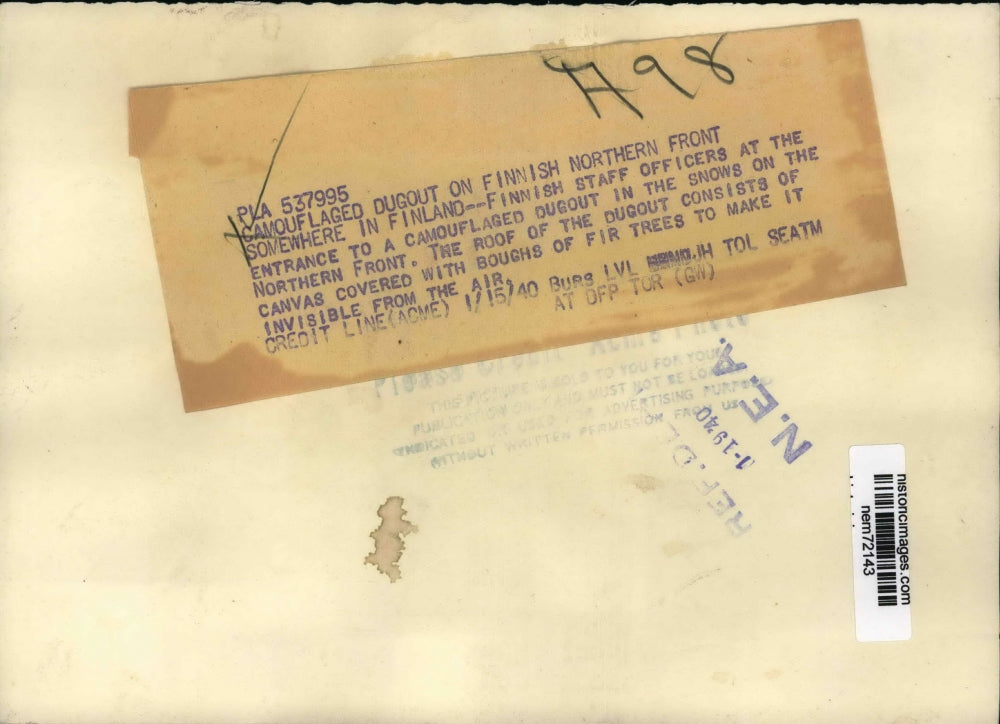 A98
PLA 537995
CAMOUFLAGED DUGOUT ON FINNISH NORTHERN FRONT
SOMEWHERE IN FINLAND--FINNISH STAFF OFFICERS AT THE
ENTRANCE TO A CAMOUFLAGED DUGOUT IN THE SNOWS ON THE
NORTHERN FRONT. THE ROOF OF THE DUGOUT CONSISTS OF
CANVAS COVERED WITH BOUGHS OF FIR TREES TO MAKE IT
INVISIBLE FROM THE AIR.
CREDIT LINE(ACME) 1/15/40 BURS LVL JH TOL SEATM
AT DFP TOR (GW)
Please Credit Acme Photo
THIS PICTURE IS SOLD TO YOU FOR YOUR
PUBLICATION ONLY AND MUST NOT BE
SYNDICATED USED FOR ADVERTISING
WITHOUT WRITTEN PERMISSION FROM US
N.E.A.
1-1940
REF. DE
historicimages.com
nem72143